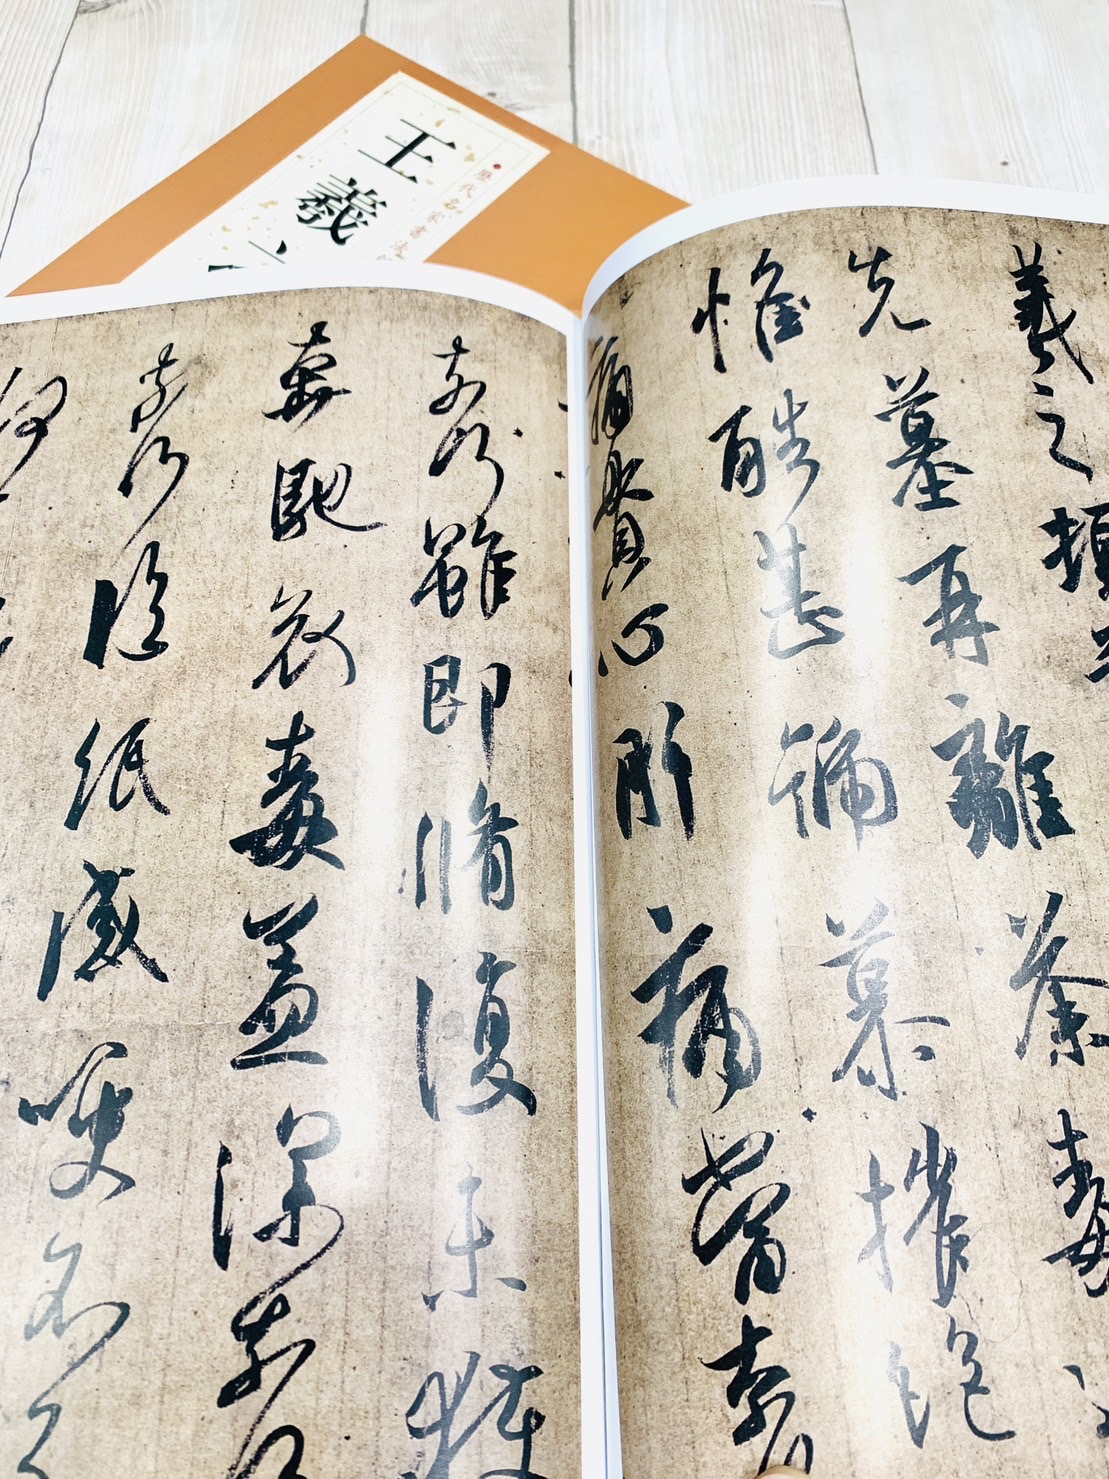 歷代名家書法
王羲
羲之頓
先墓再離荼毒
惟酷甚號慕摧絕
痛貫心肝痛當奈
奈何雖即脩復未獲
奔馳哀毒益深奈
奈何臨紙感哽不
何